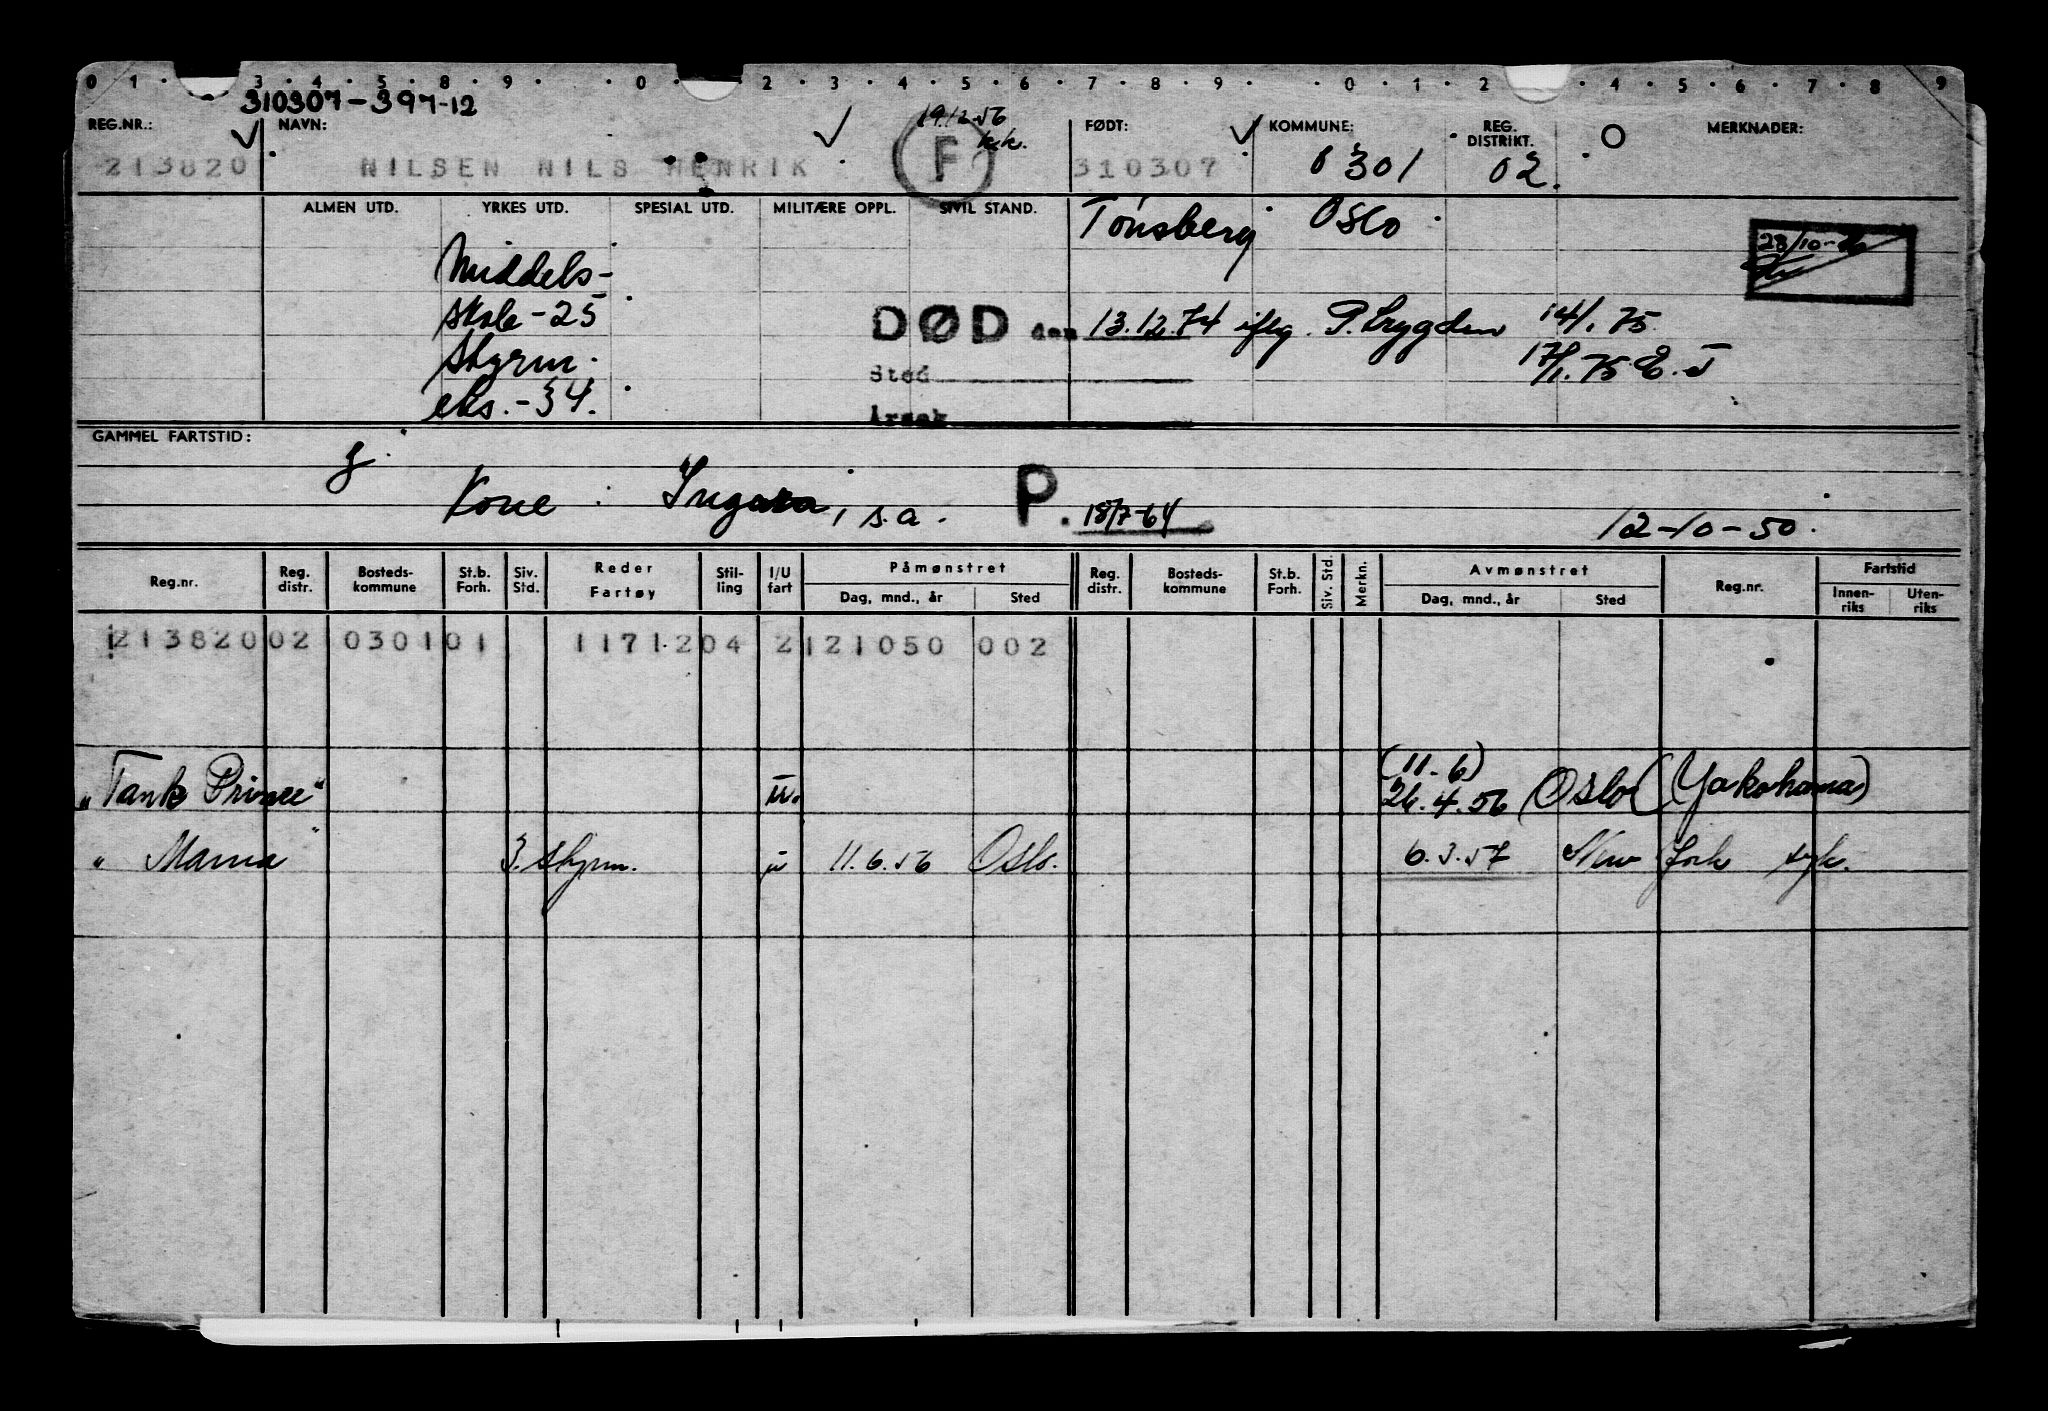 0 1 · 3 · 4 · 5 · 8 · 9 · · 0 · 2 · 3 · 4 · 5 · 6 · 7 · 8 · 9 · · 0 · 1 · 2 · 4 · 5 · 6 · 7 · 8 9
310307-397-12
19.12.56
k.k.
REG.NR.: NAVN: FØDT: KOMMUNE: REG. DISTRIKT. MERKNADER:
213820 NILSEN NILS HENRIK F 310307 0301 02.
ALMEN UTD. YRKES UTD. SPESIAL UTD. MILITÆRE OPPL. SIVIL STAND. Tønsberg Oslo
Middels-
skole-25
DØD den 13.12.74 iflg. P. trygden 14/1.75
Styrm.
17/1.75 E.J
Sted
eks.-34.
Årsak
GAMMEL FARTSTID:
Kone : s.a. P. 18/7-64 12-10-50.
Reg.nr. Reg. distr. Bosteds- kommune St.b. Forh. Siv. Std. Reder Fartøy Stil- ling I/U fart Påmønstret Dag, mnd., år Sted Reg. distr. Bosteds- kommune St.b. Forh. Siv. Std. Merkn. Avmønstret Dag, mnd., år Sted Reg.nr. Fartstid Innen- riks Uten- riks
213820 02 0301 01 1171204 2 121050 002
(11.6)
"Tank Prince" u. 26.4.56 Oslo (Yokohama)
" " 3. styrm. u 11.6.56 Oslo. 6.3.57 New York syk.